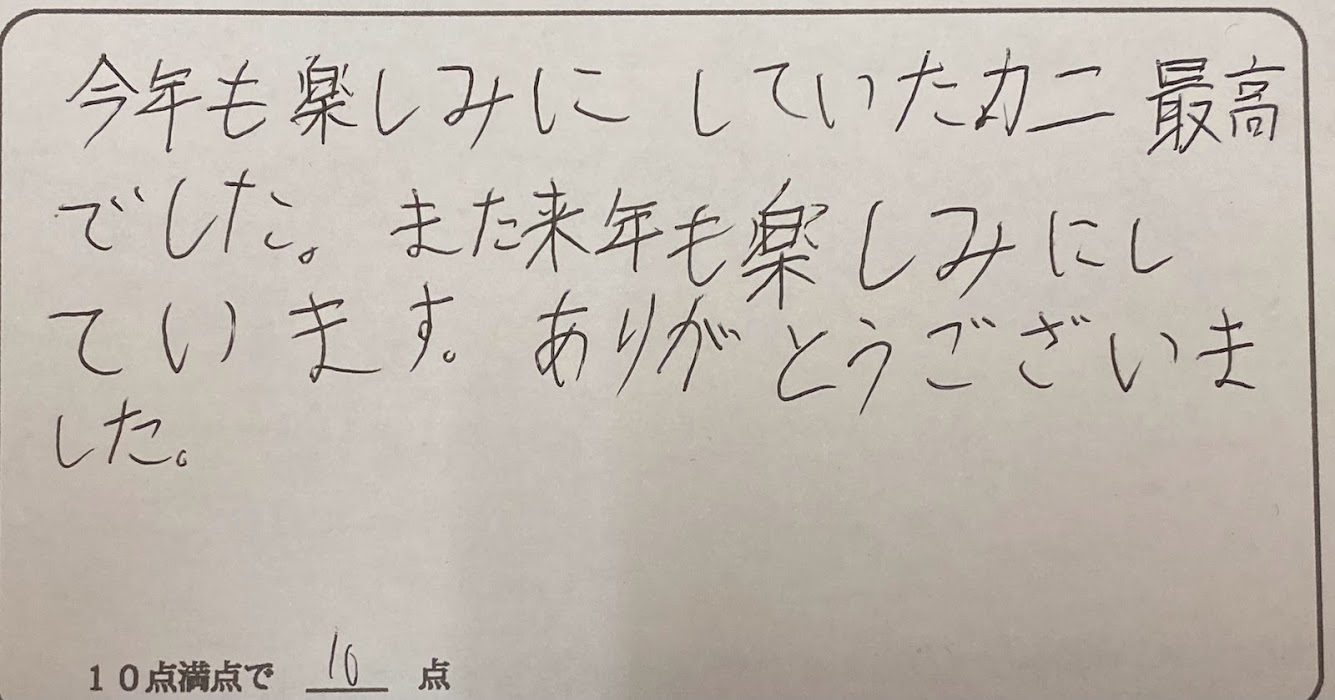 今年も楽しみにしていたカニ最高
でした。また来年も楽しみにし
ています。ありがとうございま
した。
10点満点で 10 点